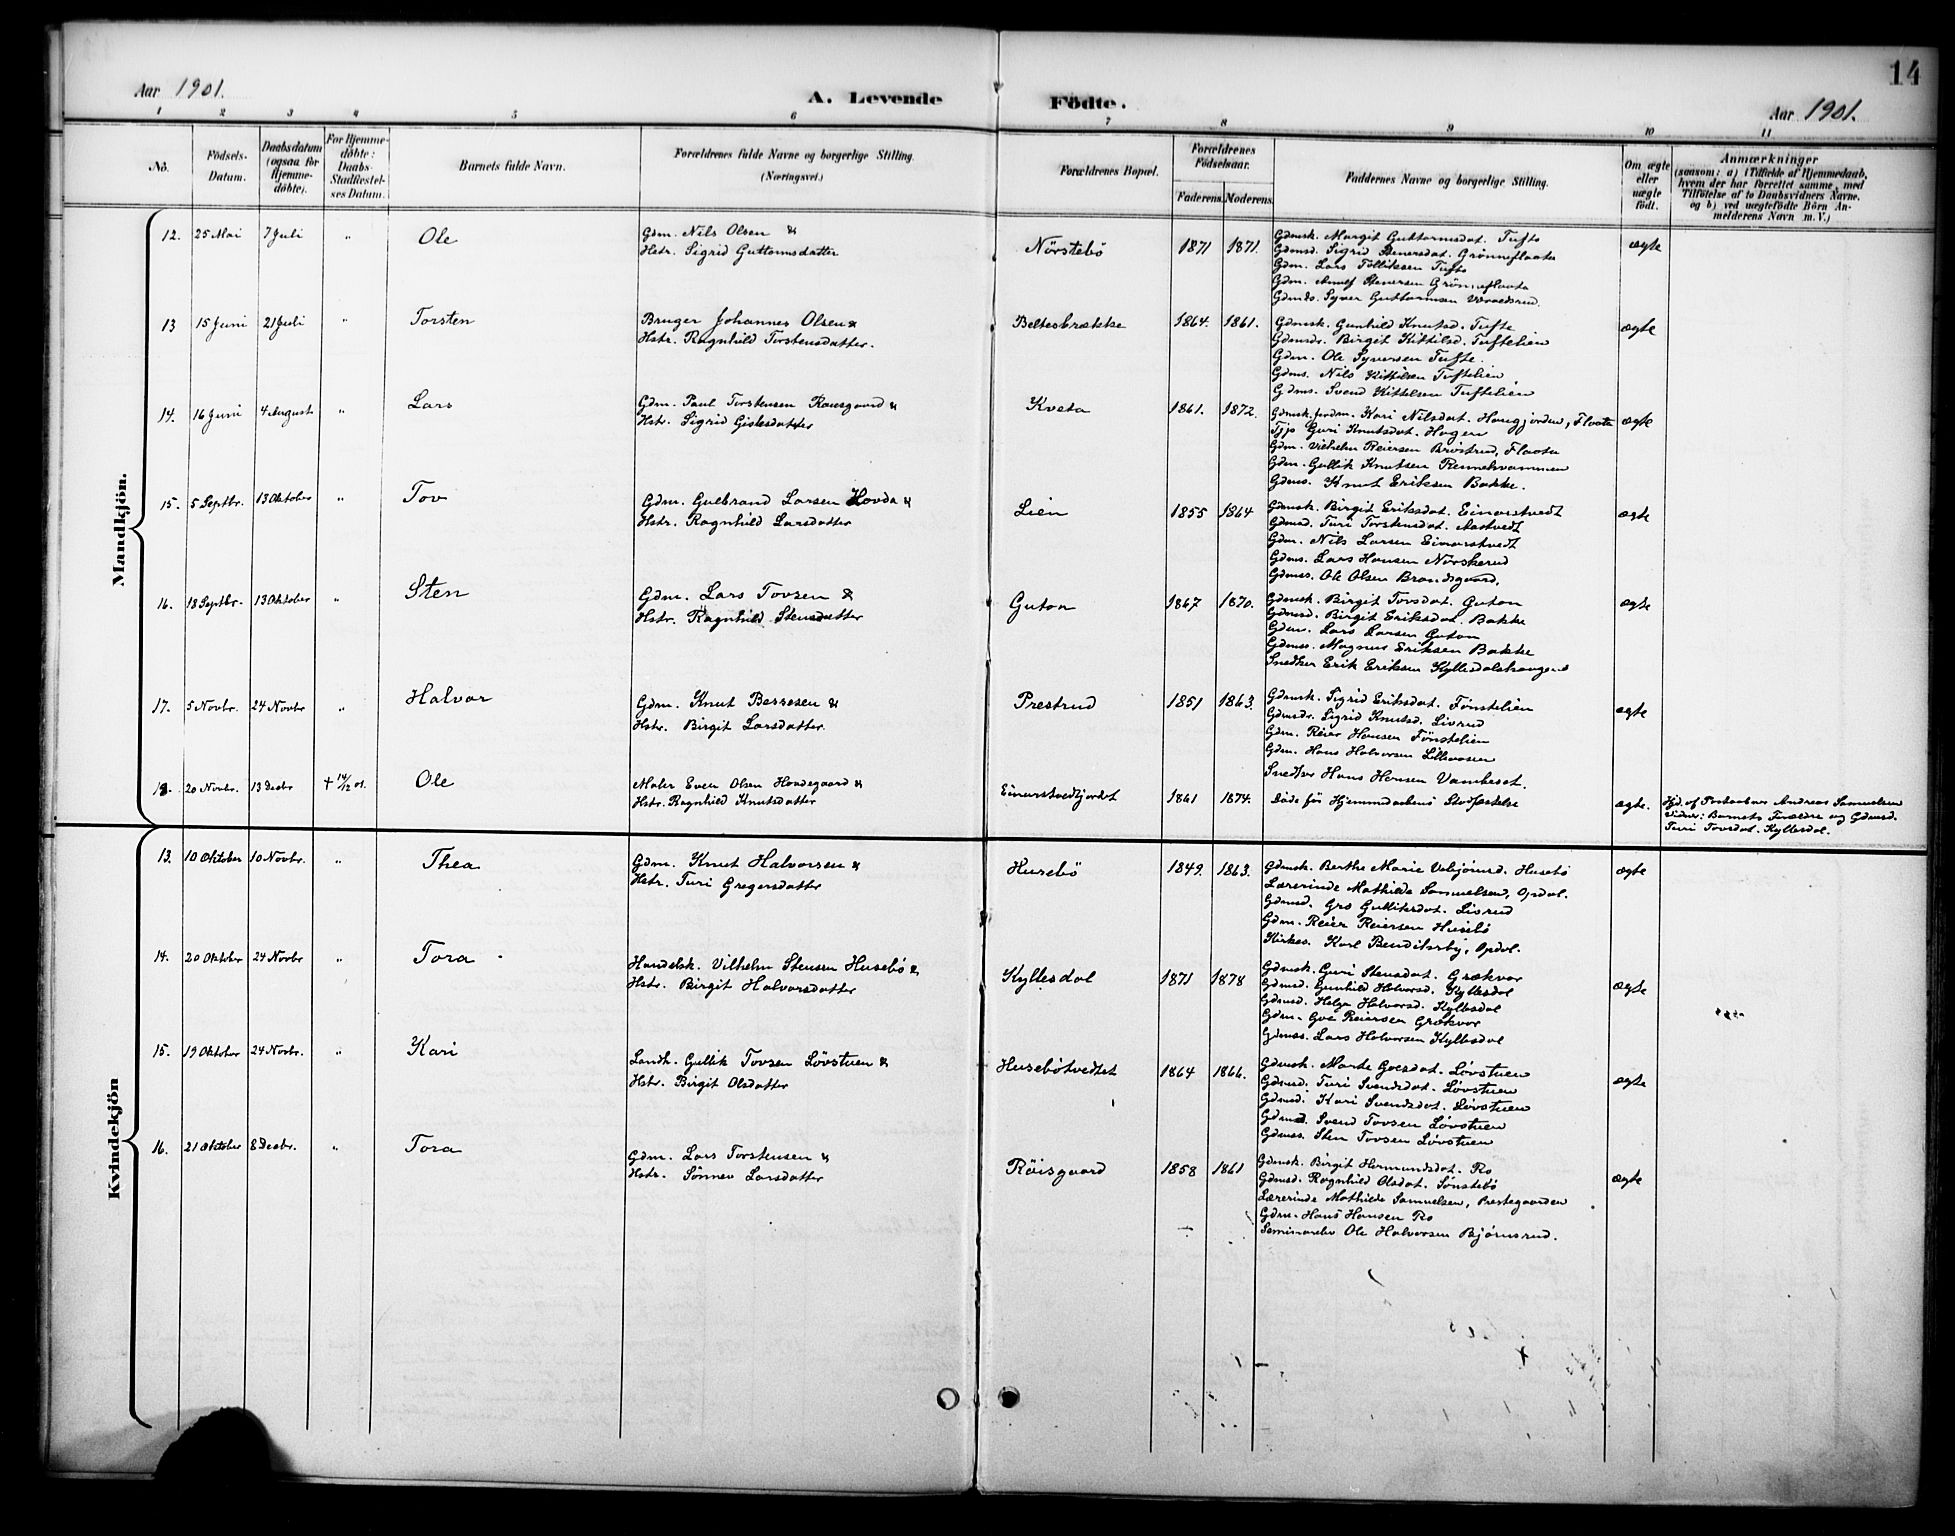 14
Aar 1901.
A. Levende
Födte.
Aar 1901.
1 2 3 4 5 6 7 8 9 10 11
No.
Födsels-Datum.
Daabsdatum (ogsaa for Hjemme-döbte).
For Hjemme-döbte: Daabs-Stadfæstel-ses Datum.
Barnets fulde Navn.
Forældrenes fulde Navne og borgerlige Stilling.
(Næringsvei.)
Forældrenes Bopæl.
Forældrenes Födselsaar.
Faderens. Moderens.
Faddernes Navne og borgerlige Stilling.
Om ægte eller uægte födt.
Anmærkninger
(saasom: a) i Tilfælde af Hjemmedaab,
hvem der har forrettet samme, med
Tilföielse af to Daabsvidners Navne,
og b) ved uægtefödte Börn An-
melderens Navn m. V.)
Mandkjön.
12. 25 Mai 7 Juli " Ole
Gdm. Nils Olsen &
Hstr. Sigrid Guttormsdatter
Nørstebö 1871 1871.
Gdmsk. Margit Guttormsdat. Tufto
Gdmsd. Sigrid Stenersdat. Grönneflaata
Gdm. Lars Tolliksen Tufto
Gdm. Stenersen Grönneflaata
Gdmds. Syver Guttormsen
ægte
13 15 Juni 21 Juli " Torsten
Bruger Johannes Olsen &
Hstr. Ragnhild Torstensdatter.
Beltesbrække 1864. 1861.
Gdmsk. Gunhild Knutsd. Tufte
Gdmsdr. Birgit Kittilsd. Tuftelien
Gdm. Ole Syversen Tufte.
Gdms. Nils Kittilsen Tuftelien
Gdms. Svend Kittelsen Tuftelien
ægte
14. 16 Juni 4 August " Lars
Gdm. Paul Torstensen Raaesgaard &
Hstr. Sigrid Gislesdatter
Kveta 1861. 1872.
Gdmsk. Kari Nilsdat. Haugjorden, Flaata
Tjp Guri Knutsdat. Hagen
Gdm. Vilhelm Reiersen Brøstrud, Flaata
Gdm. Gullik Knutsen Rennehvammen
Gdms. Knut Eriksen Bakke.
ægte
15. 5 Septbr. 13 Oktober " Tov
Gdm. Gulbrand Larsen Hovda &
Hstr. Ragnhild Larsdatter
Lien 1855 1864
Gdmsk. Birgit Eriksdat. Einarstvedt
Gdmsd. Turi Torstensdat. Aastvedt
Gdm. Nils Larsen Einarstvedt
Gdms. Lars Hansen Norskerud
Gdmss. Ole Olsen Brandsgaard.
ægte
16. 18 Septbr. 13 Oktober " Sten
Gdm. Lars Tovsen &
Hstr. Ragnhild Stensdatter
Guton 1867 1870.
Gdmsk. Birgit Tovsdat. Guton
Gdmsd. Birgit Eriksdat. Bakke
Gdm. Lars Larsen Guton
Gdmss. Magnus Eriksen Bakke
Snedker Erik Eriksen Kyllesdalshaugen
ægte
17. 5 Novbr. 24 Novbr " Halvar
Gdm. Knut Bessesen &
Hstr. Birgit Larsdatter.
Prestrud 1851 1863.
Gdmsk. Sigrid Eriksdat. Fönstelien
Gdmsdr. Sigrid Knutsd. Livrud
Gdm. Reier Hansen Fönstelien
Gdm. Hans Halvorsen Lillevasen
Snedker Hans Hansen Vambeset.
ægte
18. 20 Novbr. 13 Decbr + 14/12 01. Ole
Maler Even Olsen Hovdegaard &
Hstr. Ragnhild Knutsdatter
Einarstvedtjordet 1861 1874.
Döde før Hjemmedaabens Stadfæstelse
ægte.
Hjd. af Postaabner Andreas Samuelsen
Vidner: Barnets Forældre og Gdmsd.
Turi Tovsdat. Kyllesdal.
Kvindekjön
13. 10 Oktober 10 Novbr. " Thea
Gdm. Knut Halvorsen &
Hstr. Turi Gregersdatter
Husebö 1849. 1863.
Gdmsk. Berthe Marie Husebö
Lærerinde Mathilde Samuelsen, Opdal.
Gdmsd. Gro Gulliksdat. Livrud
Gdm. Reier Reiersen Husebö
Kirkes. Karl Opdal.
ægte
14. 20 Oktober 24 Novbr " Tora
Handelsk. Vilhelm Stensen Husebö &
Hstr. Birgit Halvorsdatter
Kyllesdal 1871 1878
Gdmsk. Guri Stensdat. Grækvor
Gdmsd. Gunhild Halvorsd. Kyllesdal
Gdmsd. Helga Halvorsd. Kyllesdal
Gdm. Goe Reiersen Grækvor
Gdmss. Lars Halvorsen Kyllesdal
ægte
15. 19 Oktober 24 Novbr. " Kari
Landh. Gullik Tovsen Løvstuen &
Hstr. Birgit Olsdatter
Husebötvedtet 1864 1866.
Gdmsk. Marte Goesdat. Løvstuen
Gdmsd. Turi Svendsdat. Løvstuen
Gdmsd. Kari Svendsdat. Løvstuen
Gdmsd. Svend Tovsen Løvstuen
Gdmss. Sten Tovsen Løvstuen
ægte
16. 21 Oktober 8 Decbr. " Tora
Gdm. Lars Torstensen &
Hstr. Sönnev Larsdatter
Röisgaard 1858 1861
Gdmsk. Birgit Hermundsdat. Ro
Gdmsd. Ragnhild Olsdat. Sönstebö
Lærerinde Mathilde Samuelsen, Prestegaarden
Gdm. Hans Hansen Ro
Seminarelev Ole Halvorsen Bjørnsrud.
ægte